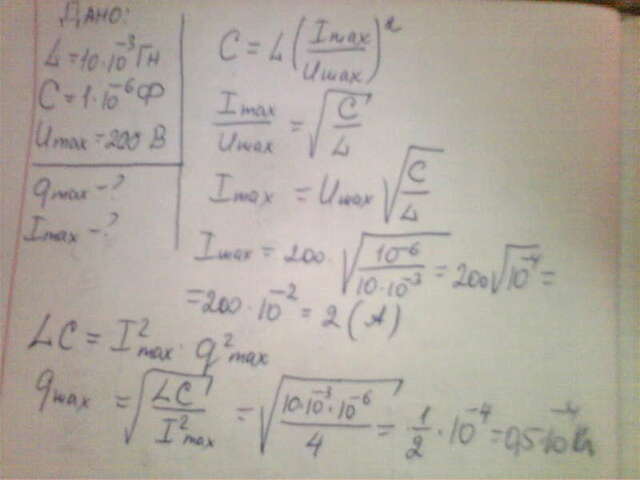 Дано:
L = 10·10⁻³ Гн
C = 1·10⁻⁶ Ф
Umax = 200 В
qmax - ?
Imax - ?
C = L (Imax/Umax)²
Imax/Umax = √(C/L)
Imax = Umax √(C/L)
Imax = 200·√(10⁻⁶/10·10⁻³) = 200√10⁻⁴ =
= 200·10⁻² = 2 (А)
LC = I²max · q²max
qmax = √(LC/I²max) = √(10·10⁻³·10⁻⁶/4) = 1/2 · 10⁻⁴ = 0,5·10⁻⁴ Кл